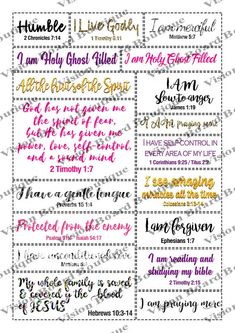 Humble
2 Chronicles 7:14
I Live Godly
1 Timothy 6:11
I am merciful
Matthew 5:7
I am Holy Ghost Filled
I am Holy Ghost Filled
All the fruits of the Spirit
I AM
Slow to anger
James 1:19
God has not given me
the spirit of fear,
but He has given me
power, love, self-control,
and a sound mind
2 Timothy 1:7
I HAVE SELF CONTROL IN
EVERY AREA OF MY LIFE
I see amazing
miracles all the time
I have a gentle tongue
Proverbs 15:1-4
Protected from the enemy
I am forgiven
Ephesians 1:7
I am reading and
studying my bible
2 Timothy 2:15
My whole family is saved
& covered by the blood
of JESUS
Hebrews 10:3-14
I am praying more